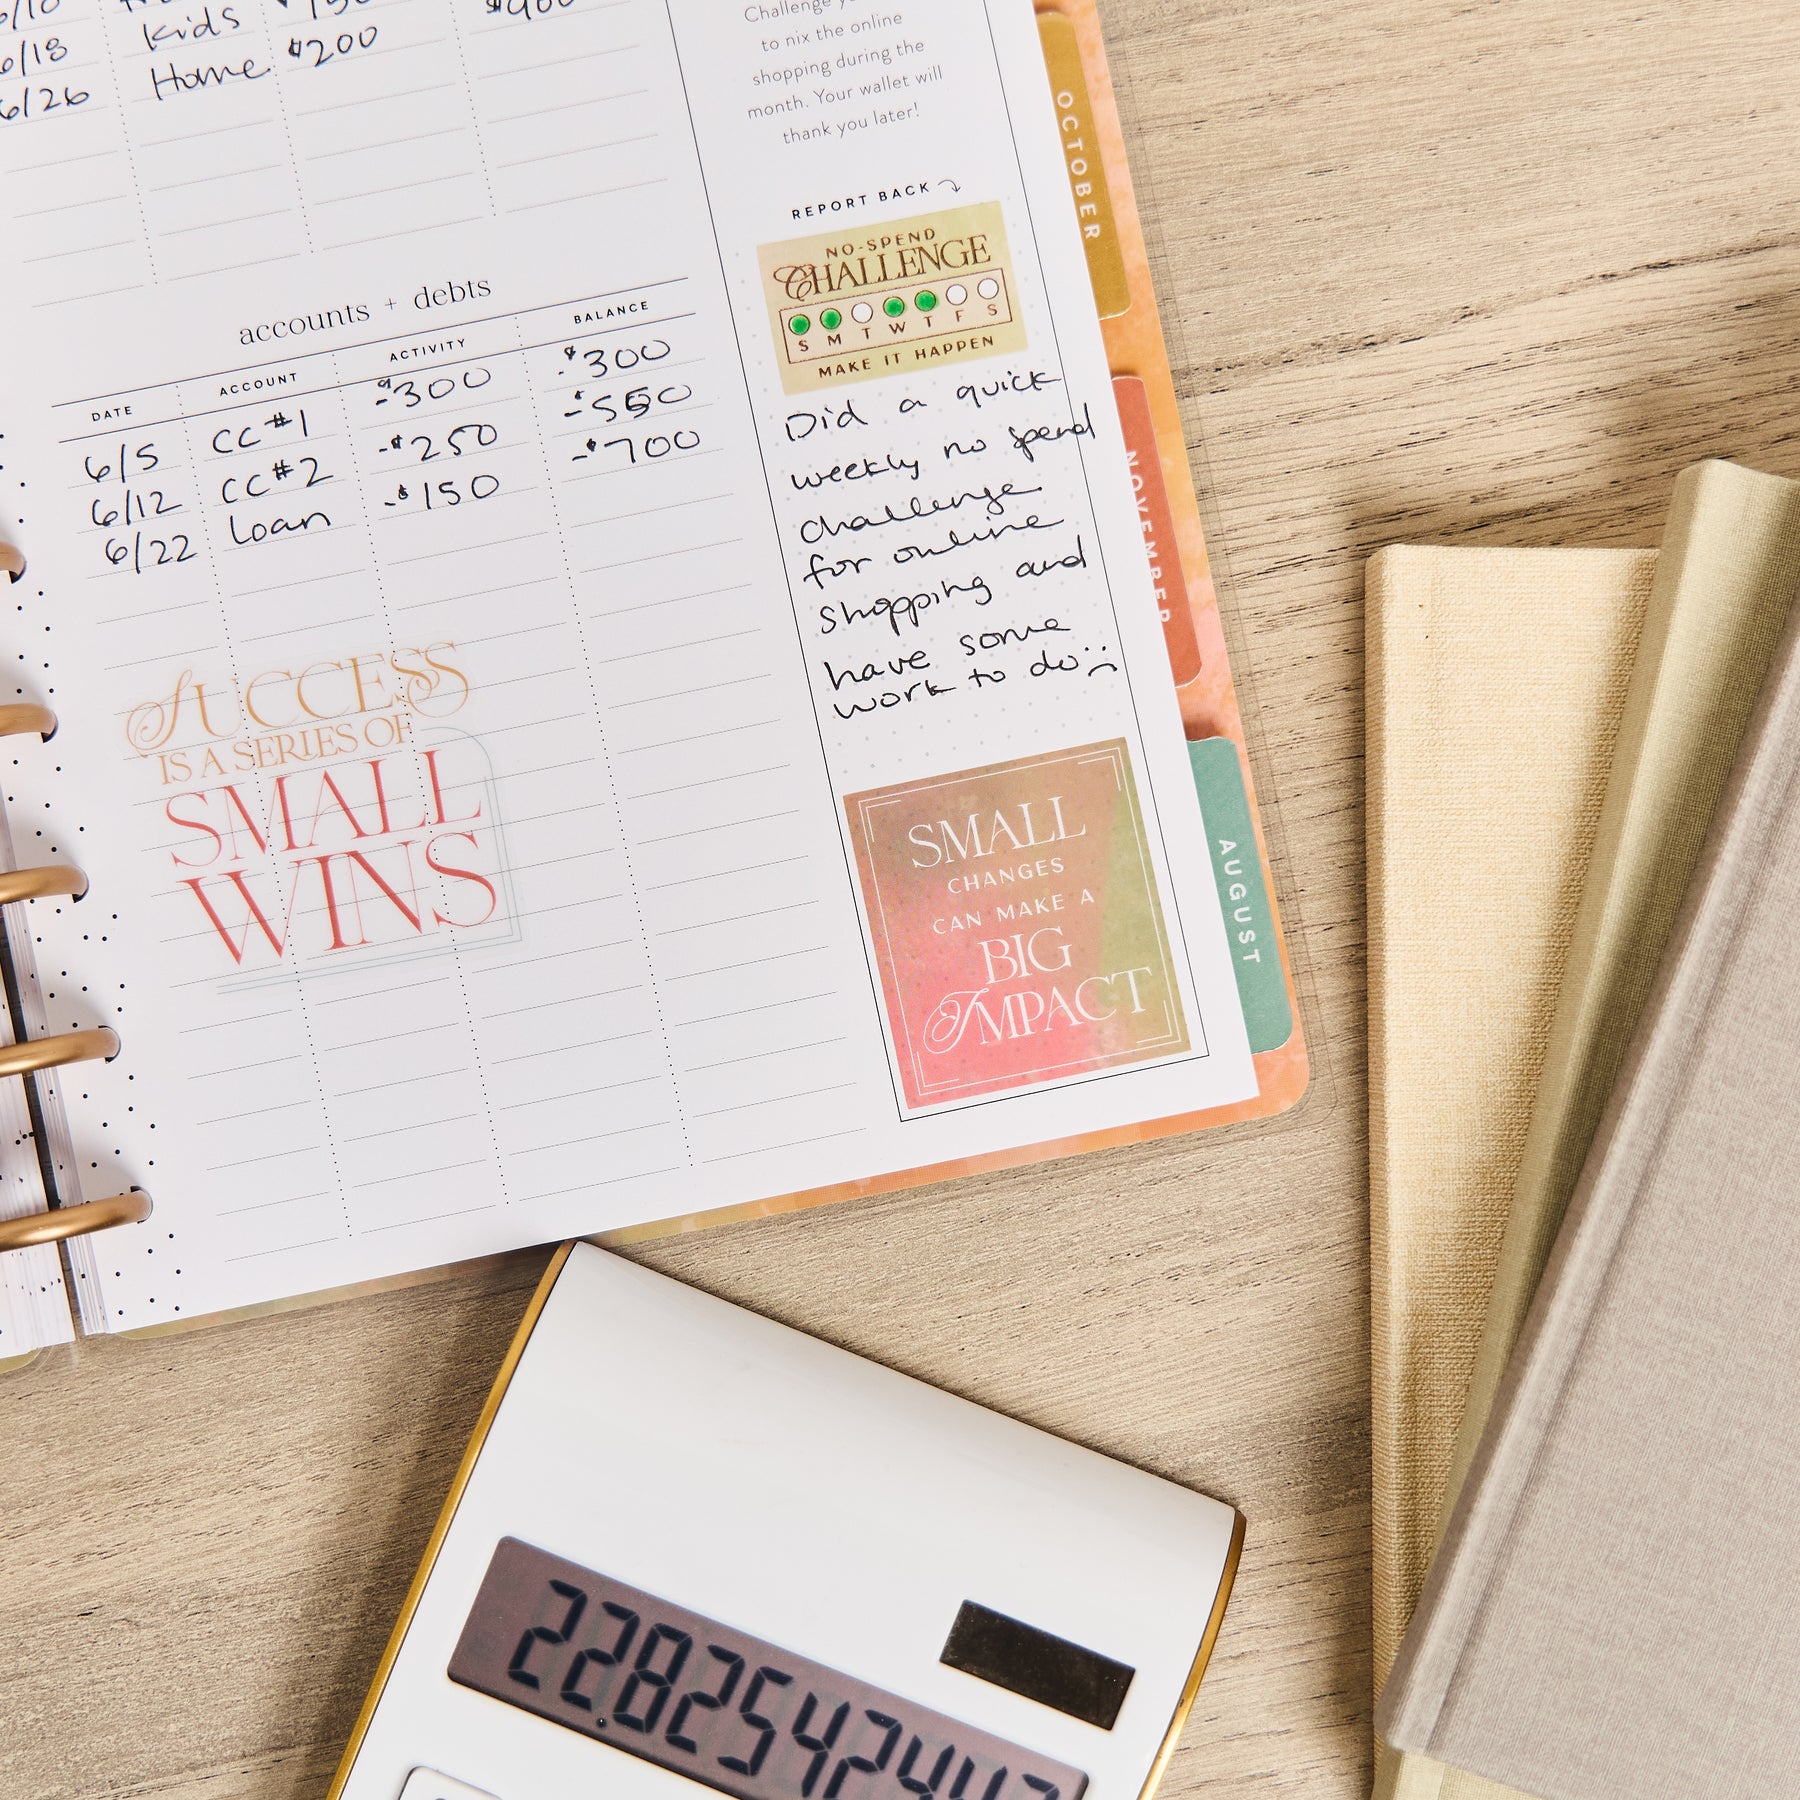 Kids
6/18
Home $200
6/26
to nix the online
shopping during the
month. Your wallet will
thank you later!
REPORT BACK
NO-SPEND
CHALLENGE
S M T W T F S
MAKE IT HAPPEN
accounts + debts
DATE ACCOUNT ACTIVITY BALANCE
6/5 CC #1 -$300 -$300
6/12 CC #2 -$250 -$550
6/22 Loan -$150 -$700
Did a quick
weekly no spend
challenge
for online
shopping and
have some
work to do
SUCCESS
IS A SERIES OF
SMALL
WINS
SMALL
CHANGES
CAN MAKE A
BIG
IMPACT
OCTOBER
NOVEMBER
AUGUST